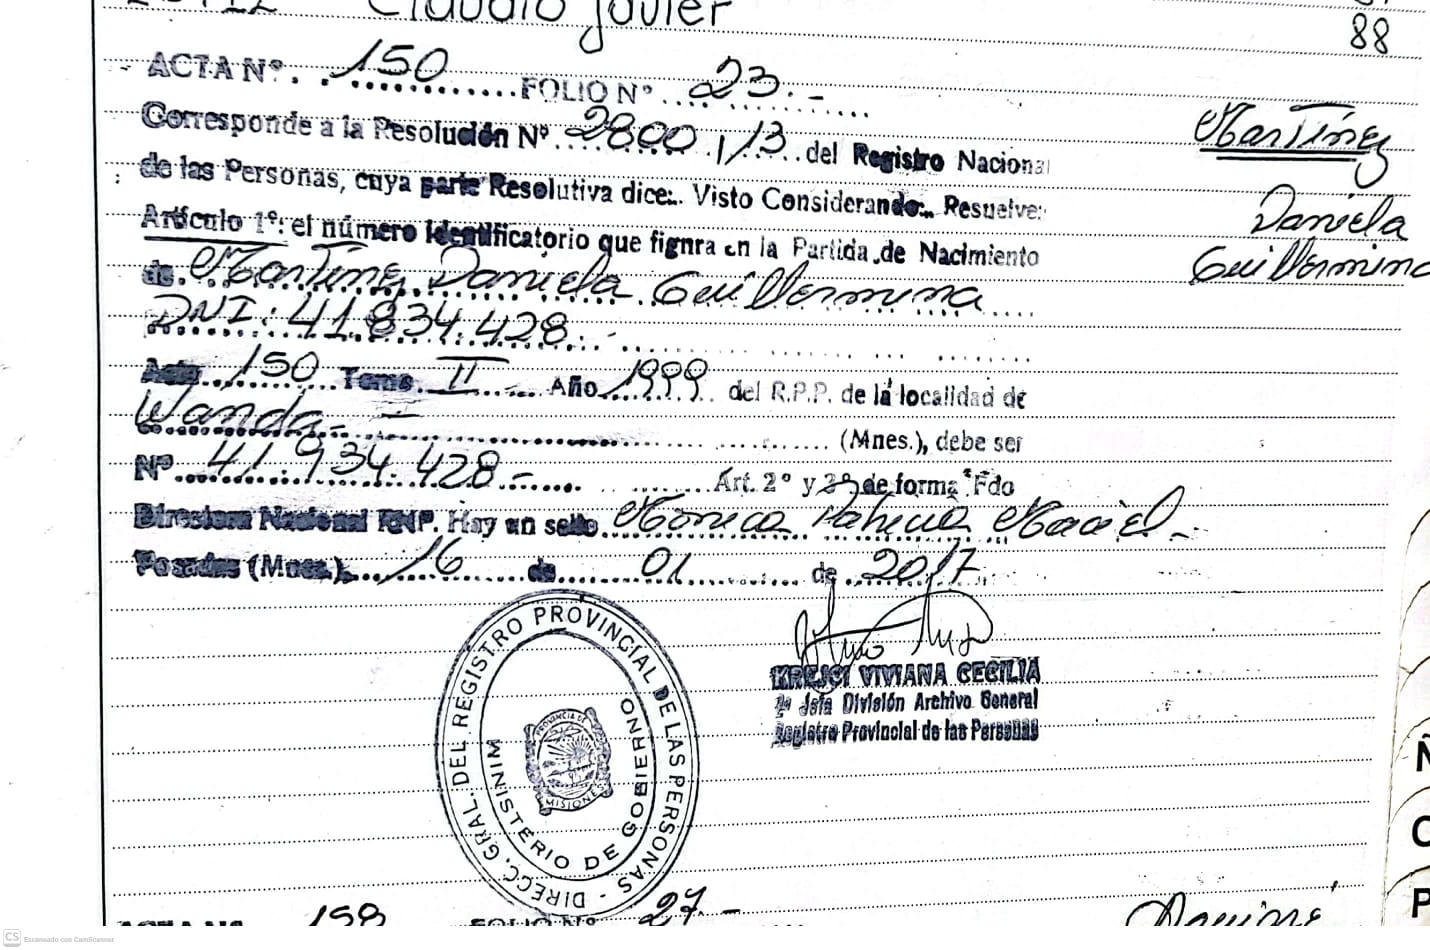 Claudio Javier
88
ACTA Nº. . 150 FOLIO Nº 23.-
Corresponde a la Resolución Nº 2800 /13 del Registro Nacional
de las Personas, cuya parte Resolutiva dice:. Visto Considerando:. Resuelve:
Artículo 1º: el número identificatorio que fignra en la Partida de Nacimiento
de. Martínez Daniela Guillermina
DNI: 41.834.428.-
Acta 150 Tomo II Año 1999 del R.P.P. de la localidad de
Wanda.- (Mnes.), debe ser
Nº 41.934.428.- Art. 2º y 3º de forma Fdo
Directora Nacional RNP. Hay un sello Mónica Patricia Maciel.-
Posadas (Mnes.). 16 de 01 de 2017
Martínez
Daniela
Guillermina
KREJCI VIVIANA CECILIA
2º Jefa División Archivo General
Registro Provincial de las Personas
DIRECC. GRAL. DEL REGISTRO PROVINCIAL DE LAS PERSONAS -
MINISTERIO DE GOBIERNO
PROVINCIA DE
MISIONES
ACTA Nº 158 FOLIO Nº 27.-
Aguirre
Ñ
C
P
CS Escaneado con CamScanner